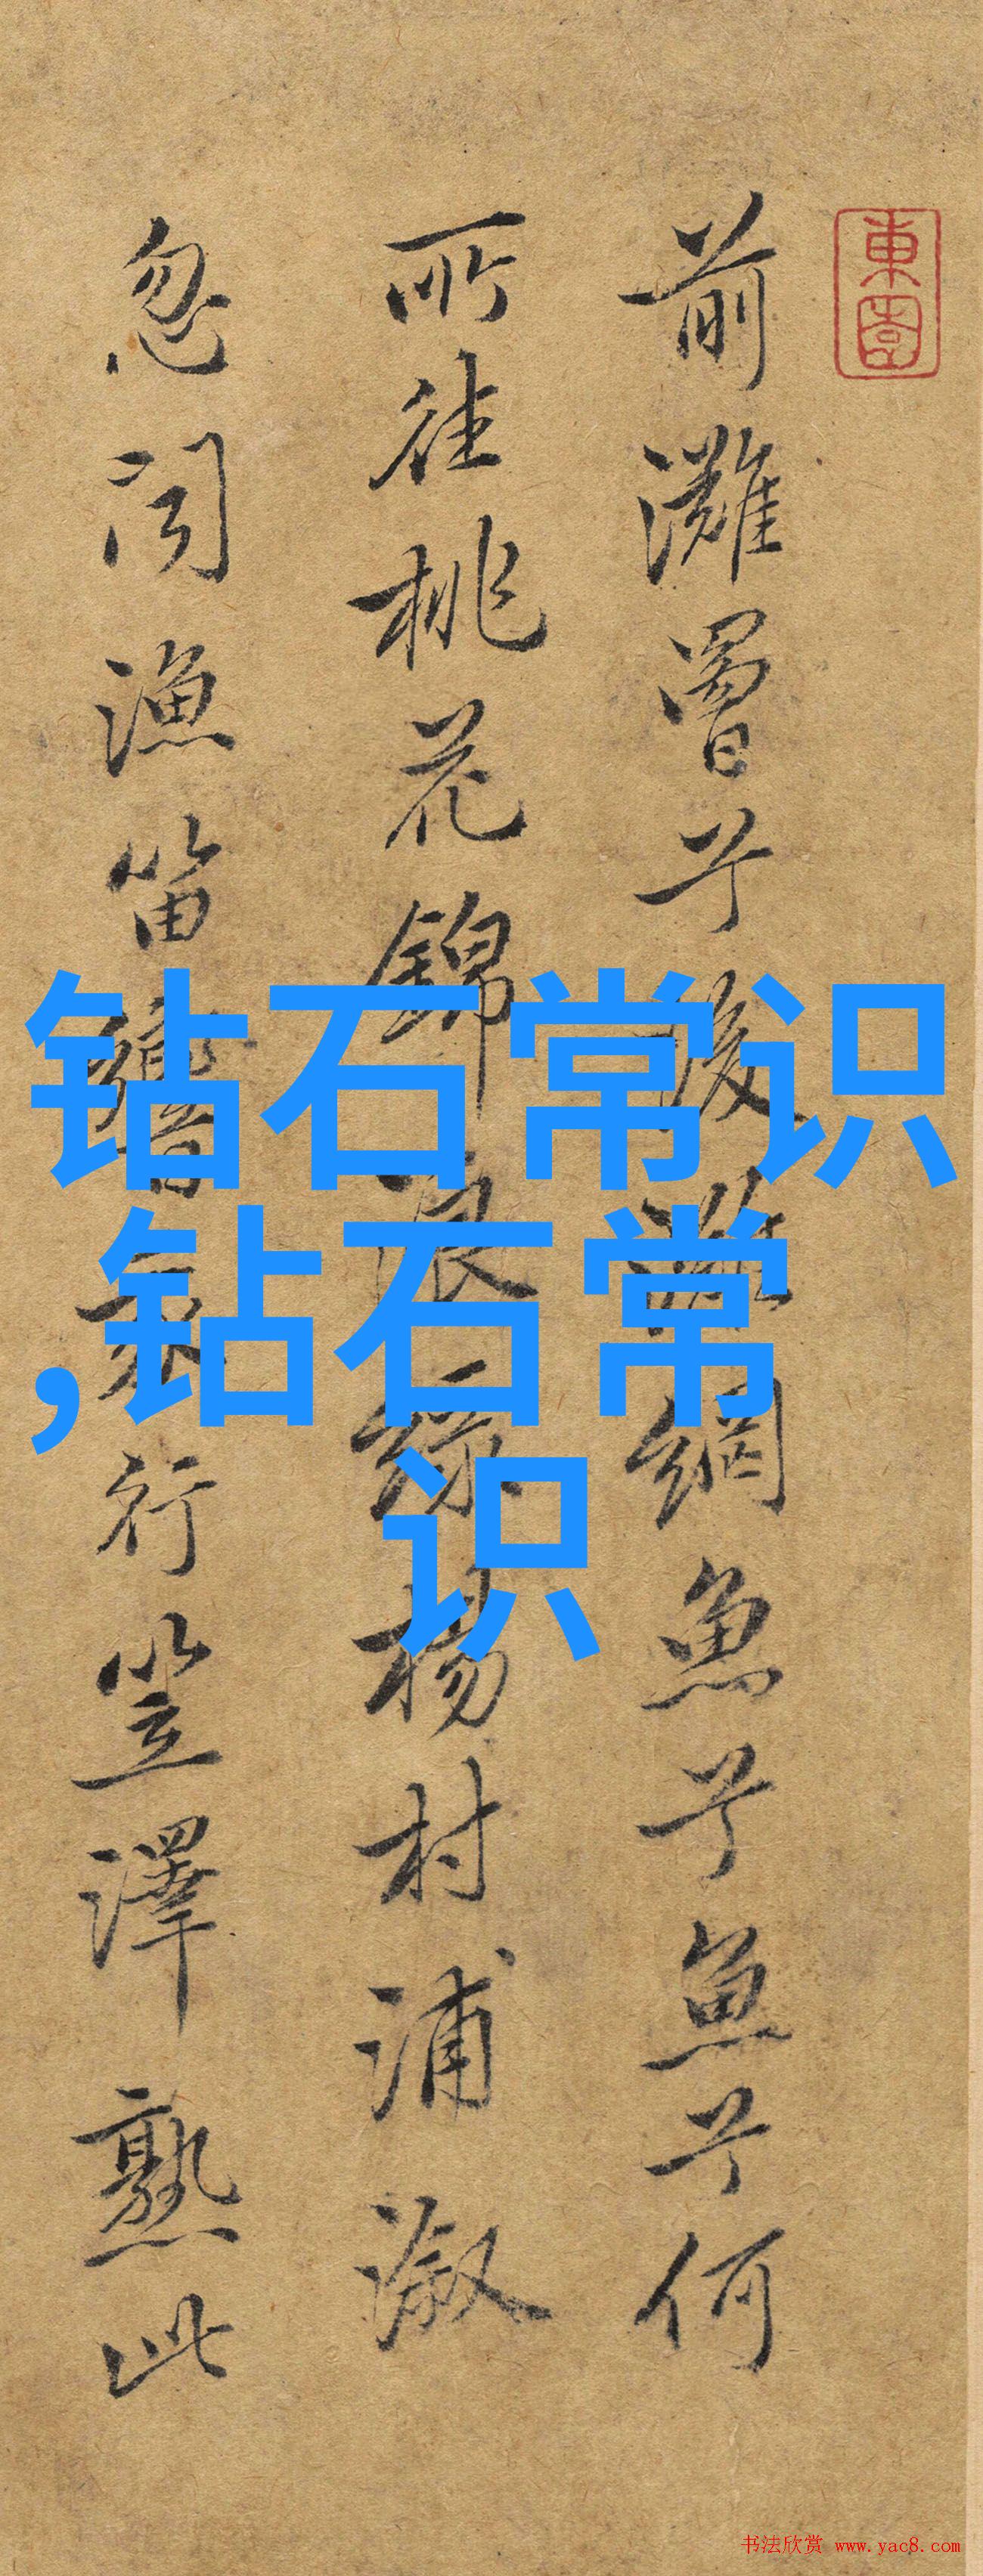 東園
前灘罾兮後灘網魚兮魚兮何
所往桃花錦浪綠楊村浦溆
忽聞漁笛響行笠澤熟此
钻石常识
,钻石常
识
书法欣赏 www.yac8.com